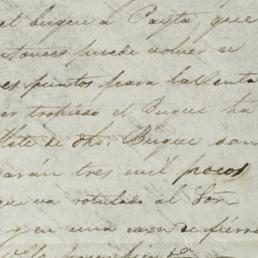 el buque a Payta, que
entonces puede volver a
es puntos para la venta
as tropieso el Buque ha
flete de dho. Buque son
arán tres mil pocos
que va rotulado al Sor
y en una caxon de fierro